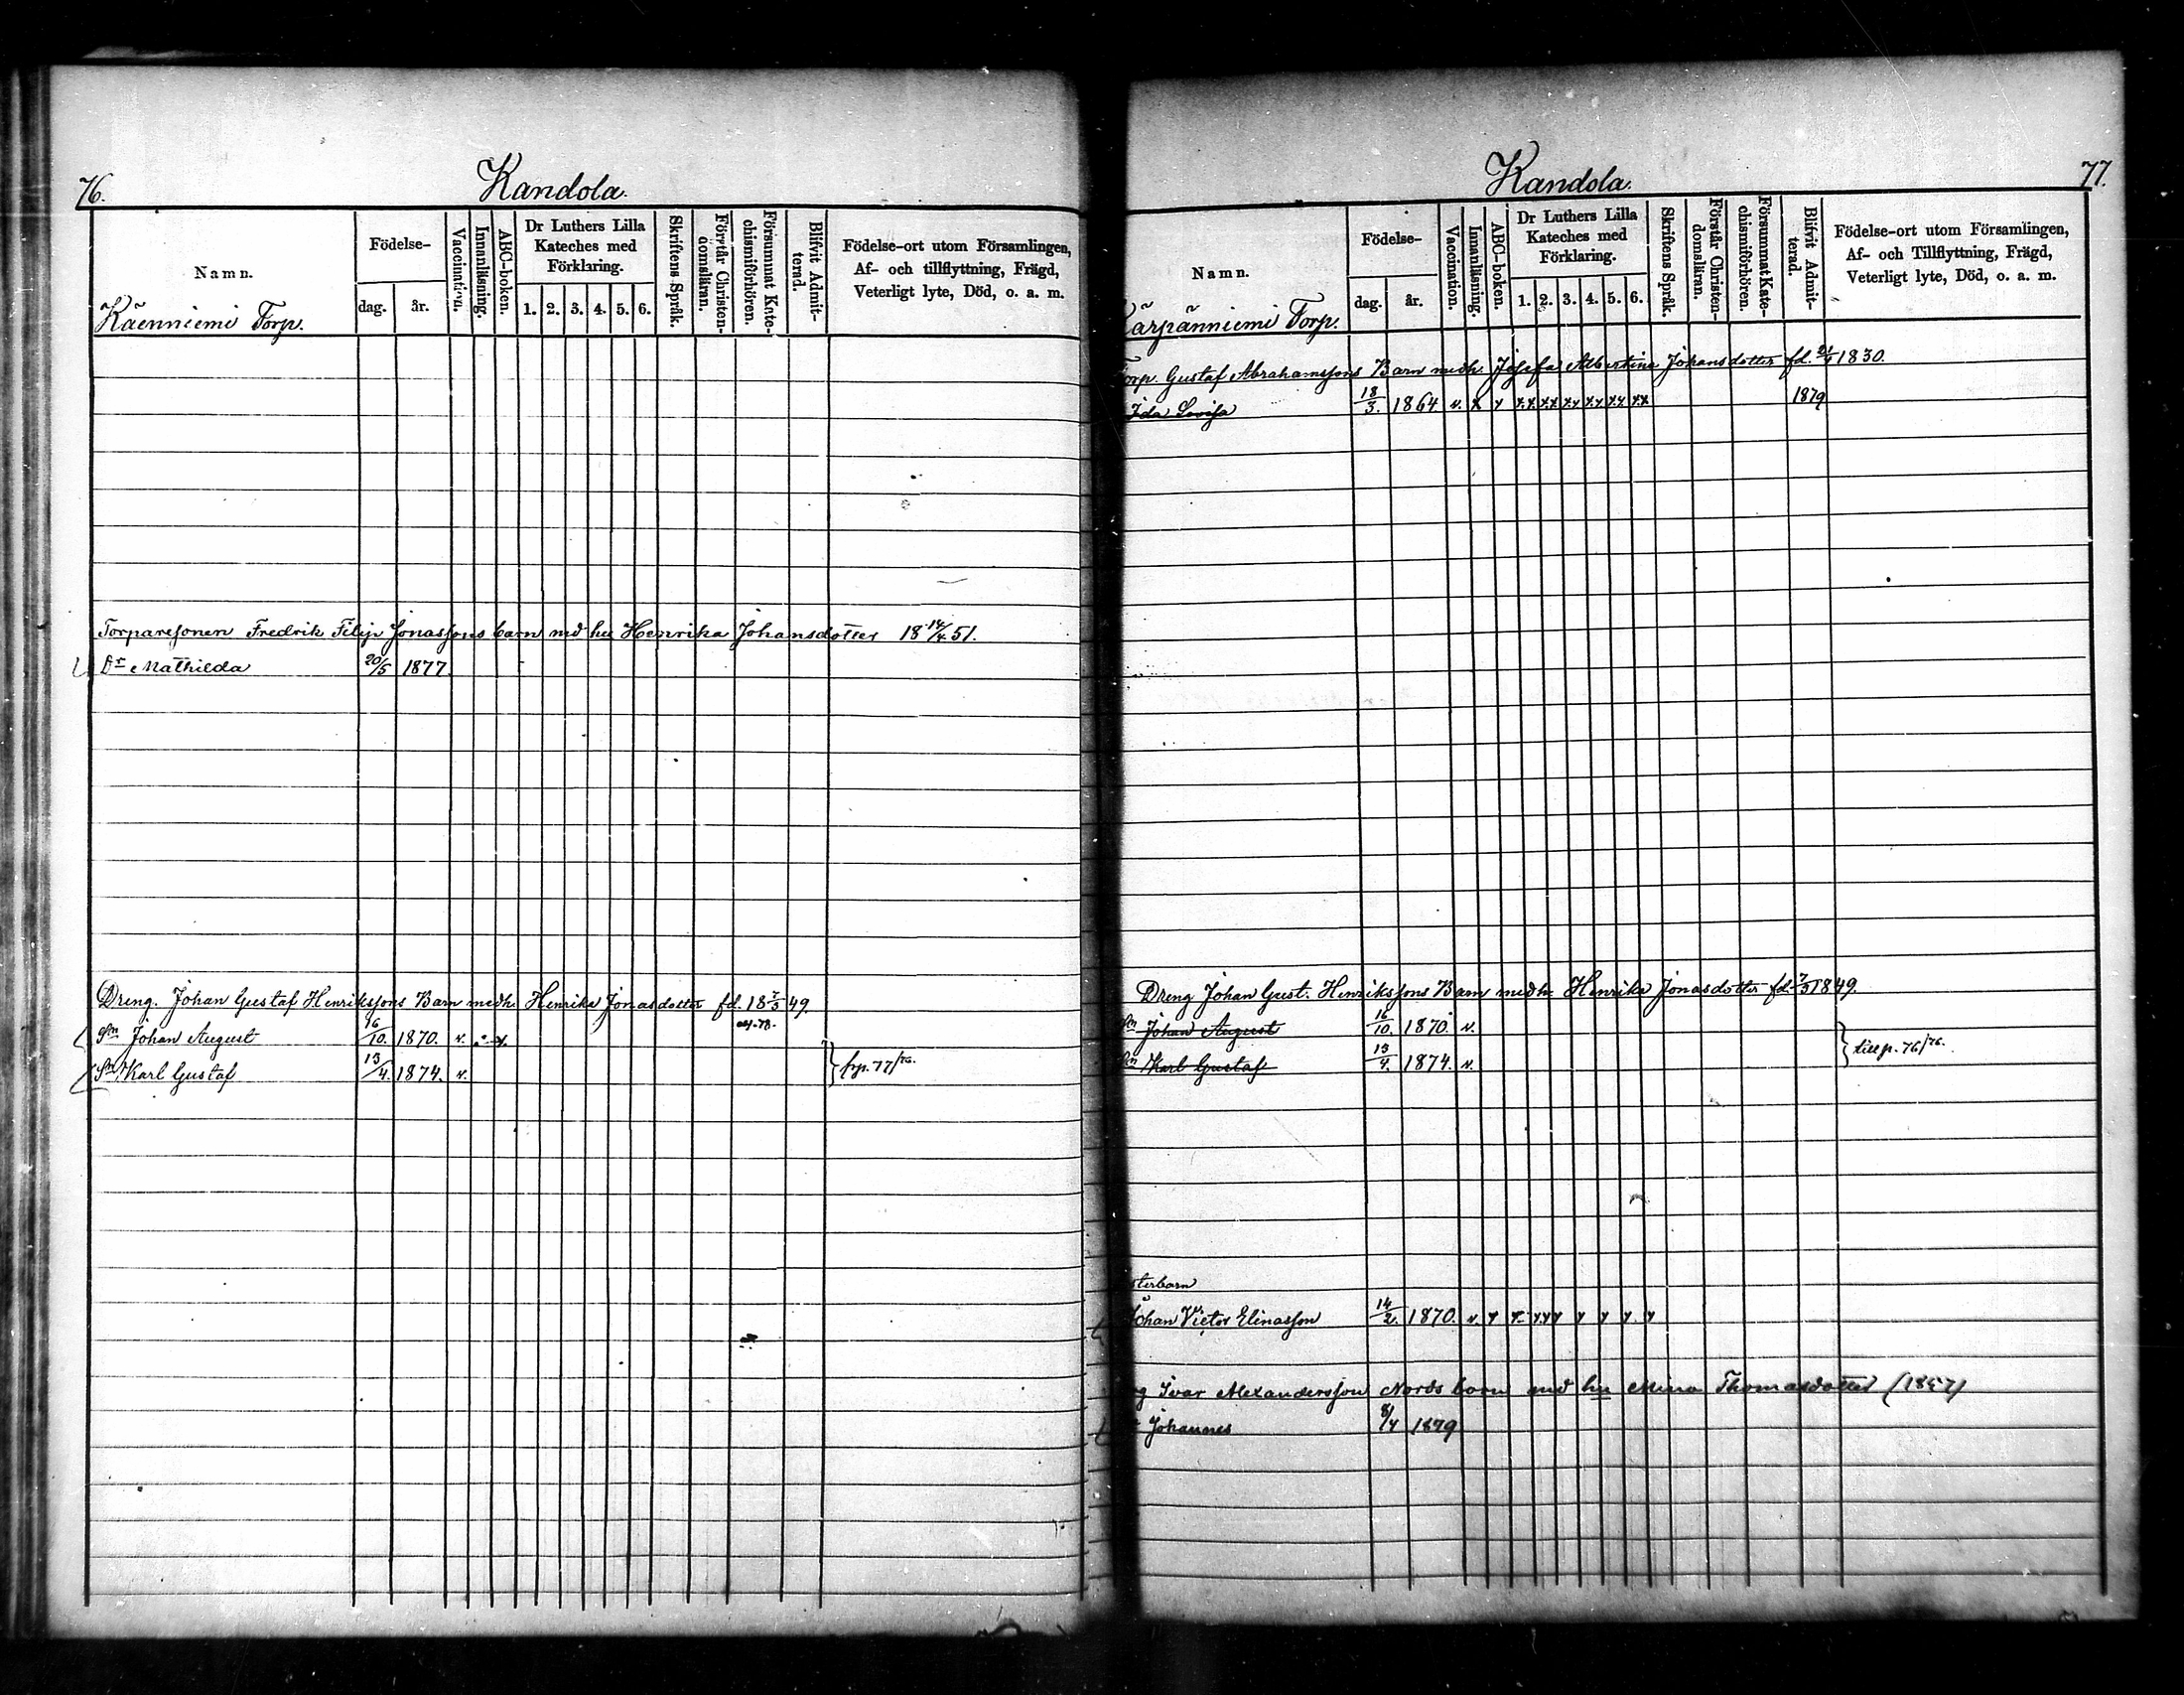 76.
Kandola.
Namn.
Födelse-
dag. år.
Vaccination.
Innanläsning.
ABC-boken.
Dr Luthers Lilla Kateches med Förklaring.
1. 2. 3. 4. 5. 6.
Skriftens Språk.
Förstår Christen-domsläran.
Försummat Kate-chismiförhören.
Blifvit Admit-terad.
Födelse-ort utom Församlingen,
Af- och tillflyttning, Frägd,
Veterligt lyte, Död, o. a. m.
Käenniemi Torp.
Torparesonen Fredrik Filip Jonassons barn md hu Henrika Johansdotter 18 14/4 51.
Dr Mathilda 20/5 1877.
Dreng. Johan Gustaf Henrikssons Barn medh. Henrika Jonasdotter fd. 18 7/3 49.
Sn Johan August 16/10. 1870. v.
Sn Karl Gustaf 13/4. 1874. v.
frp. 77/76.
77.
Kandola.
Namn.
Födelse-
dag. år.
Vaccination.
Innanläsning.
ABC-boken.
Dr Luthers Lilla Kateches med Förklaring.
1. 2. 3. 4. 5. 6.
Skriftens Språk.
Förstår Christen-domsläran.
Försummat Kate-chismiförhören.
Blifvit Admit-terad.
Födelse-ort utom Församlingen,
Af- och Tillflyttning, Frägd,
Veterligt lyte, Död, o. a. m.
ärpänniemi Torp.
Torp. Gustaf Abrahamssons Barn medh. Josefa Albertina Johansdotter fd. 1830.
Ida Lovisa 18/3. 1864 v. x x xx xx xx xx xx xx 1879
Dreng Johan Gust. Henrikssons Barn medh. Henrika Jonasdotter fd. 7/3 1849.
Sn Johan August 16/10. 1870. v.
Sn Karl Gustaf 13/4. 1874. v.
till p. 76/76.
sterbarn
Johan Victor Elinasson 14/2. 1870. v
g Ivar Alexandersson Nords barn md hu Mina Thomasdotter (1857)
Johannes 8/4 1879